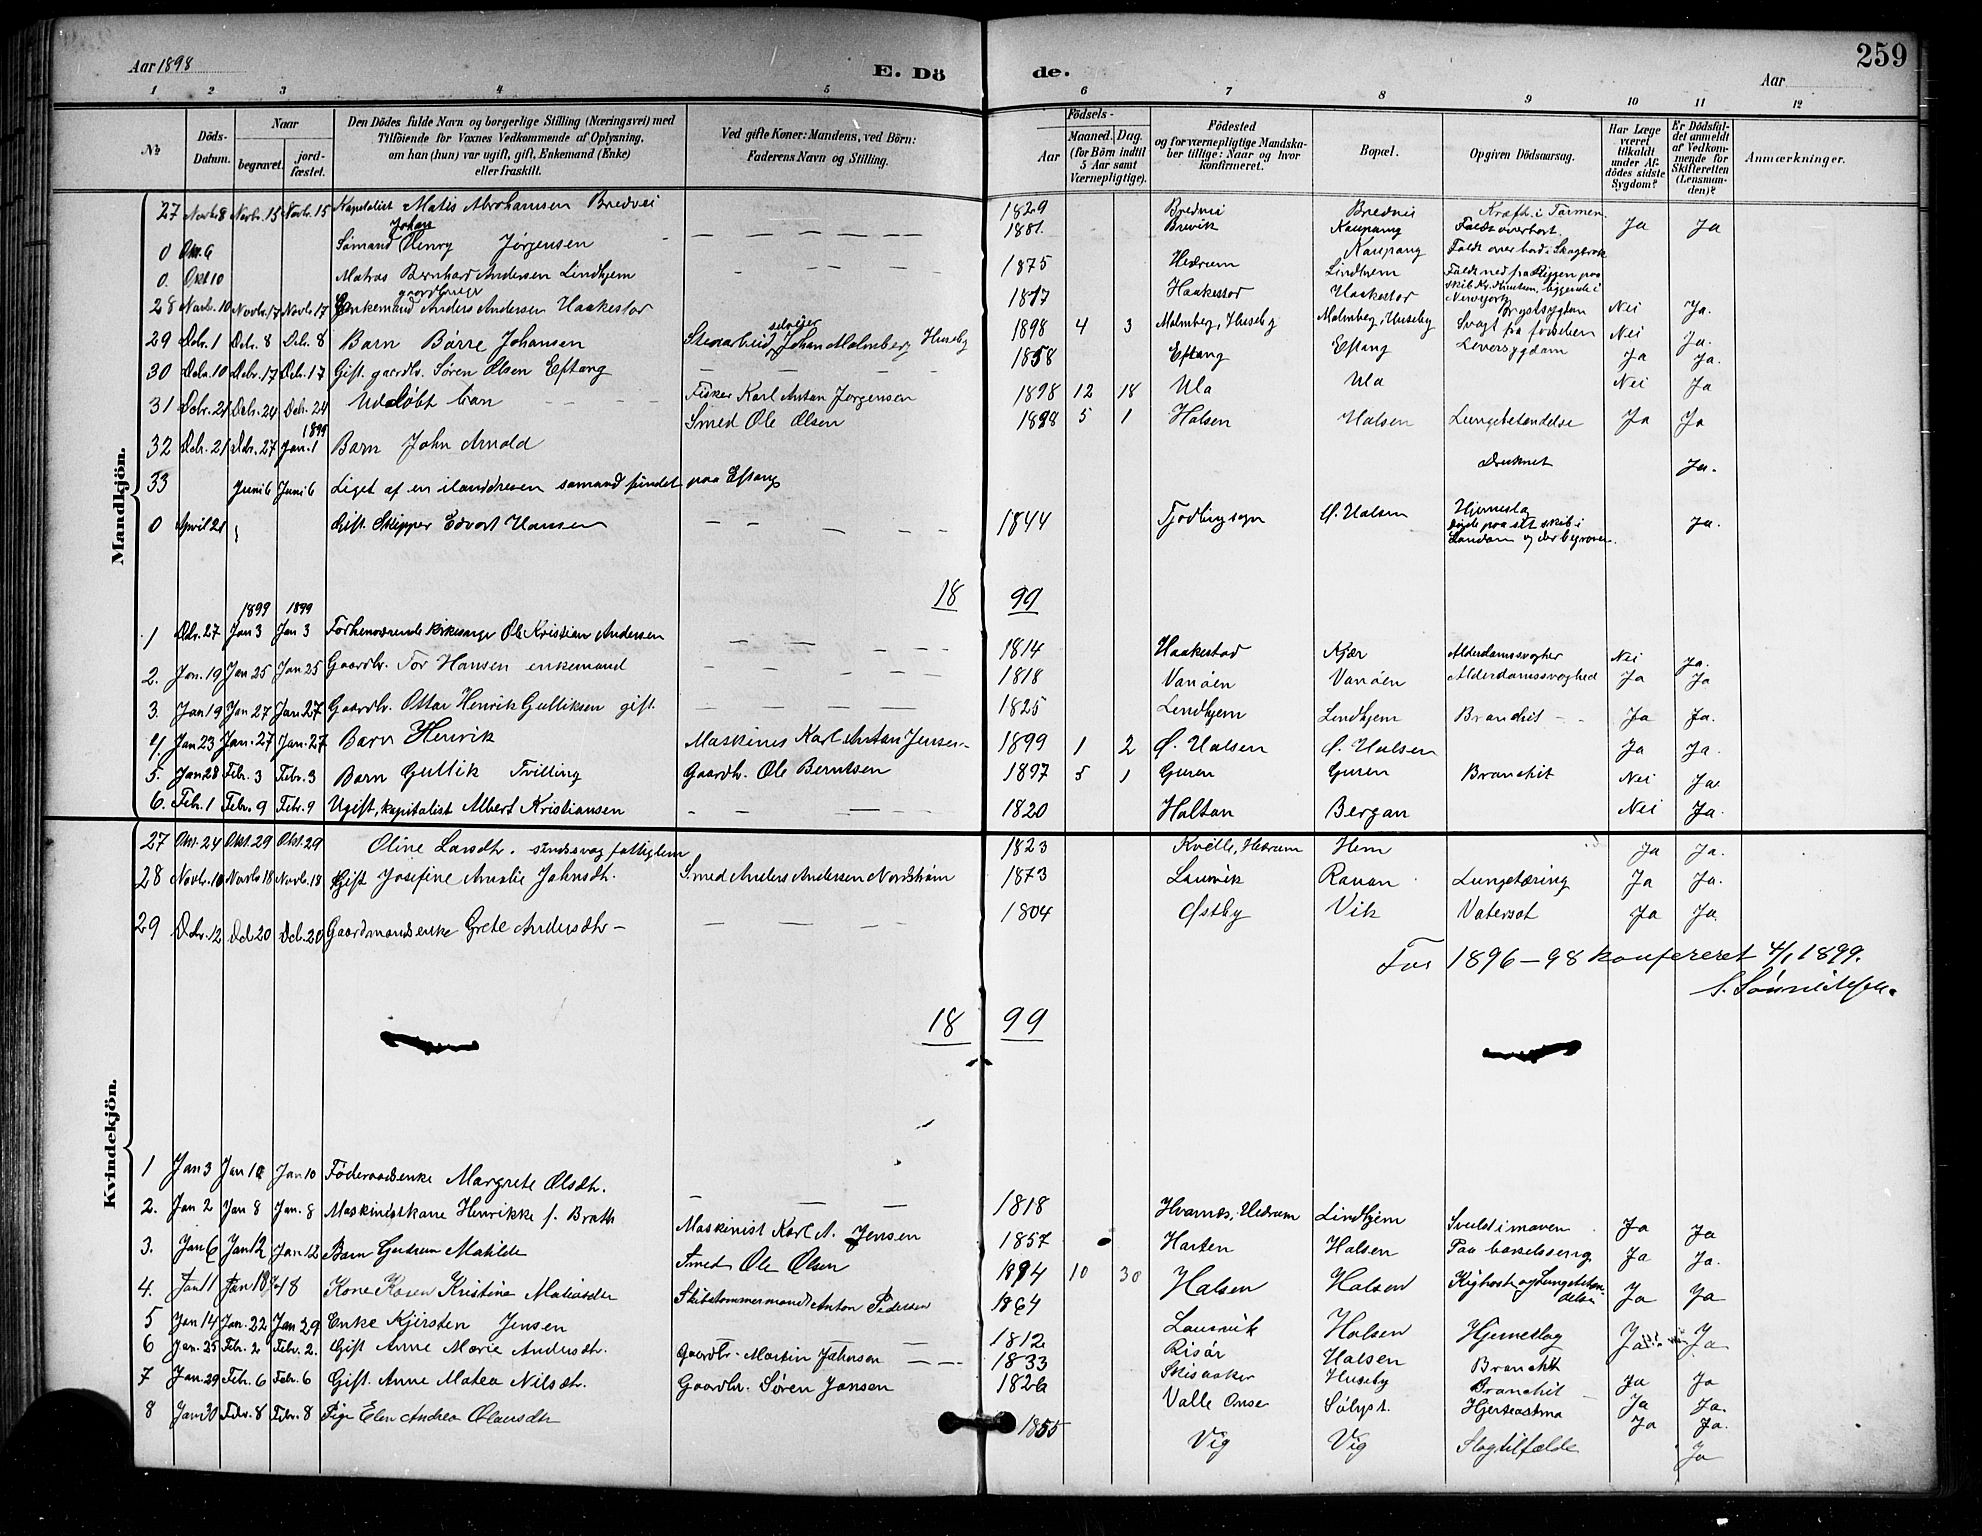 Aar 1898 E. Dö de. Aar 259
1 2 3 4 5 6 7 8 9 10 11 12
№ Döds-Datum. Naar begravet. jordfæstet. Den Dödes fulde Navn og borgerlige Stilling (Næringsvei) med Tilföiende for Voxnes Vedkommende af Oplysning, om han (hun) var ugift, gift, Enkemand (Enke) eller fraskilt. Ved gifte Koner: Mandens, ved Börn: Faderens Navn og Stilling. Födsels- Aar Maaned. Dag. (for Börn indtil 5 Aar samt Værnepligtige). Födested og for værnepligtige Mandskaber tillige: Naar og hvor konfirmeret. Bopæl. Opgiven Dödsaarsag. Har Læge været tilkaldt under Afdödes sidste Sygdom? Er Dödsfaldet anmeldt af Vedkommende for Skifteretten (Lensmanden)? Anmærkninger.
Mandkjön.
27 Novb. 8 Novb. 15 Novb. 15 Kapitalist Matis Abrahamsen Bredvei 1829 Bredvei Bredvei Kræft i Tarmen. Ja Ja
0 Okt. 6 Sømand Johan Henry Jørgensen — — — — 1881 Brevik Kaupang Faldt overbort.
0. Okt 10 Matros Bernhard Andersen Lindhjem — — — — 1875 Hedrum Lindhjem Faldt ned fra Riggen paa skib liggende i Newyork
28 Novbr. 10 Novbr. 17 Novbr. 17 Enkemand gaardbruger Anders Andersen Haakestad 1817 Haakestad Haakestad Brystsygdom Nei Ja.
29 Dcbr. 1 Dcb. 8 Dcb. 8 Barn Børre Johansen Stenarbeid, selveier Johan Malmberg Huseby 1898 4 3 Malmberg, Huseby Malmberg, Huseby Svagt fra fødselen Nei Ja.
30 Dcbr. 10 Dcbr. 17 Dcb. 17 Gift gaardbr. Søren Olsen Eftang — — — 1858 Eftang Eftang Leversygdom Ja Ja.
31 Dcbr. 21 Dcbr. 24 Dcb. 24 Udøbt barn — — — Fisker Karl Anton Jørgensen 1898 12 18 Ula Ula Nei Ja
32 Dcbr. 21 Dcbr. 27 1899 Jan. 1 Barn John Arnold Smed Ole Olsen 1898 5 1 Halsen Halsen Lungebetændelse Ja Ja
33 Juni 6 Juni 6 Liget af en ilanddreven sømand fundet paa Eftang Druknet Ja.
0 April 21 Gift Skipper Edvart Hansen — — — — 1844 Tjødling sogn Ø. Halsen Hjerneslag døde paa sit skib i London og der begraven. Ja.
18 99
1 Dcbr. 27 1899 Jan 3 1899 Jan 3 Forhenværende kirkesanger Ole Kristian Andersen — — — 1814 Haakestad Kjær Alderdomssvaghed Nei Ja.
2. Jan. 19 Jan 25 Jan 25 Gaardbr. Tor Hansen enkemand — — — 1818 Vanøen Vanøen Alderdomssvaghed Ja Ja
3. Jan 19 Jan 27 Jan 27 Gaardbr. Ottar Henrik Gulliksen gift. — — — 1825 Lindhjem Lindhjem Bronchit — Ja Ja.
4. Jan 23 Jan. 27 Jan. 27 Barn Henrik Maskinist Karl Anton Jensen 1899 1 2 Ø. Halsen Ø. Halsen Ja Ja.
5. Jan 28 Febr. 3 Febr. 3 Barn Gullik Tvilling Gaardbr. Ole Berntsen 1897 5 1 Guren Guren Bronchit Nei Ja.
6. Febr. 1 Febr. 9 Febr. 9 Ugift, kapitalist Albert Kristiansen — — — 1820 Holtan Bergan Nei Ja.
Kvindekjön.
27 Okt. 24 Okt. 29 Okt. 29 Oline Larsdtr. sindssvag fattiglem 1823 Kvelle, Hedrum Hem Ja Ja.
28 Novb. 10 Novb. 18 Novb. 18 Gift Josefine Amalie Johnsdtr. Smed Anders Andersen Nordstrøm 1873 Laurvik Rauan Lungetæring Ja Ja.
29 Dcbr. 12 Dcb. 20 Dcb. 20 Gaardmandsenke Grete Andersdtr — — — — 1804 Østby Vik Vatersot Ja Ja
For 1896–98 konfereret 4/1 1899.
18 99
1 Jan 3 Jan 10 Jan 10 Føderaadsenke Margrete Olsdtr. — — — 1818 Hvarnes, Hedrum Lindhjem Svulst i maven Ja Ja
2. Jan 2 Jan 8 Jan. 8 Maskinistkone Henrikke f. Brath Maskinist Karl A. Jensen 1857 Horten Halsen Paa barselsseng Ja Ja.
3. Jan 6 Jan 12 Jan 12 Barn Gudrun Matilde Smed Ole Olsen 1894 10 30 Halsen Halsen Kighoste og Lungebetændelse Ja Ja
4. Jan 11 Jan 18 18 Kone Karen Kristine Matiasdtr Skibstømmermand Anton Pedersen 1864 Laurvik Halsen Hjerneslag Ja Ja
5 Jan 14 Jan. 22 Jan 29 Enke Kjersten Jensen — 1812 Risør Halsen Bronchit Ja Ja
6 Jan. 25 Febr. 2 Febr. 2. Gift Anne Marie Andersdtr. Gaardbr. Martin Johnsen — — 1833 Skisaaker Huseby Bronchit Ja Ja.
7 Jan. 29 Febr. 6 Febr. 6 Gift. Anne Matea Nilsdtr. Gaardbr. Søren Jansen 1826 Valle Onsø Sølyst. Hjerteastma Ja Ja.
8 Jan 30 Febr. 8 Febr. 8 Pige Elen Andrea Olausdtr 1855 Vig Vig Slagtilfælde Ja